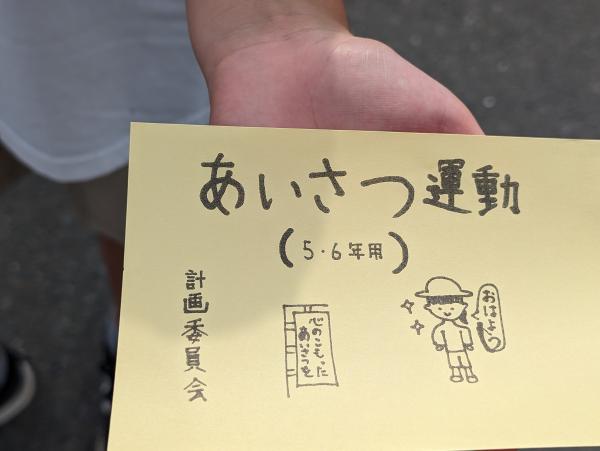 あいさつ運動
(5・6年用)
計画委員会
心のこもった
あいさつを
おはよう